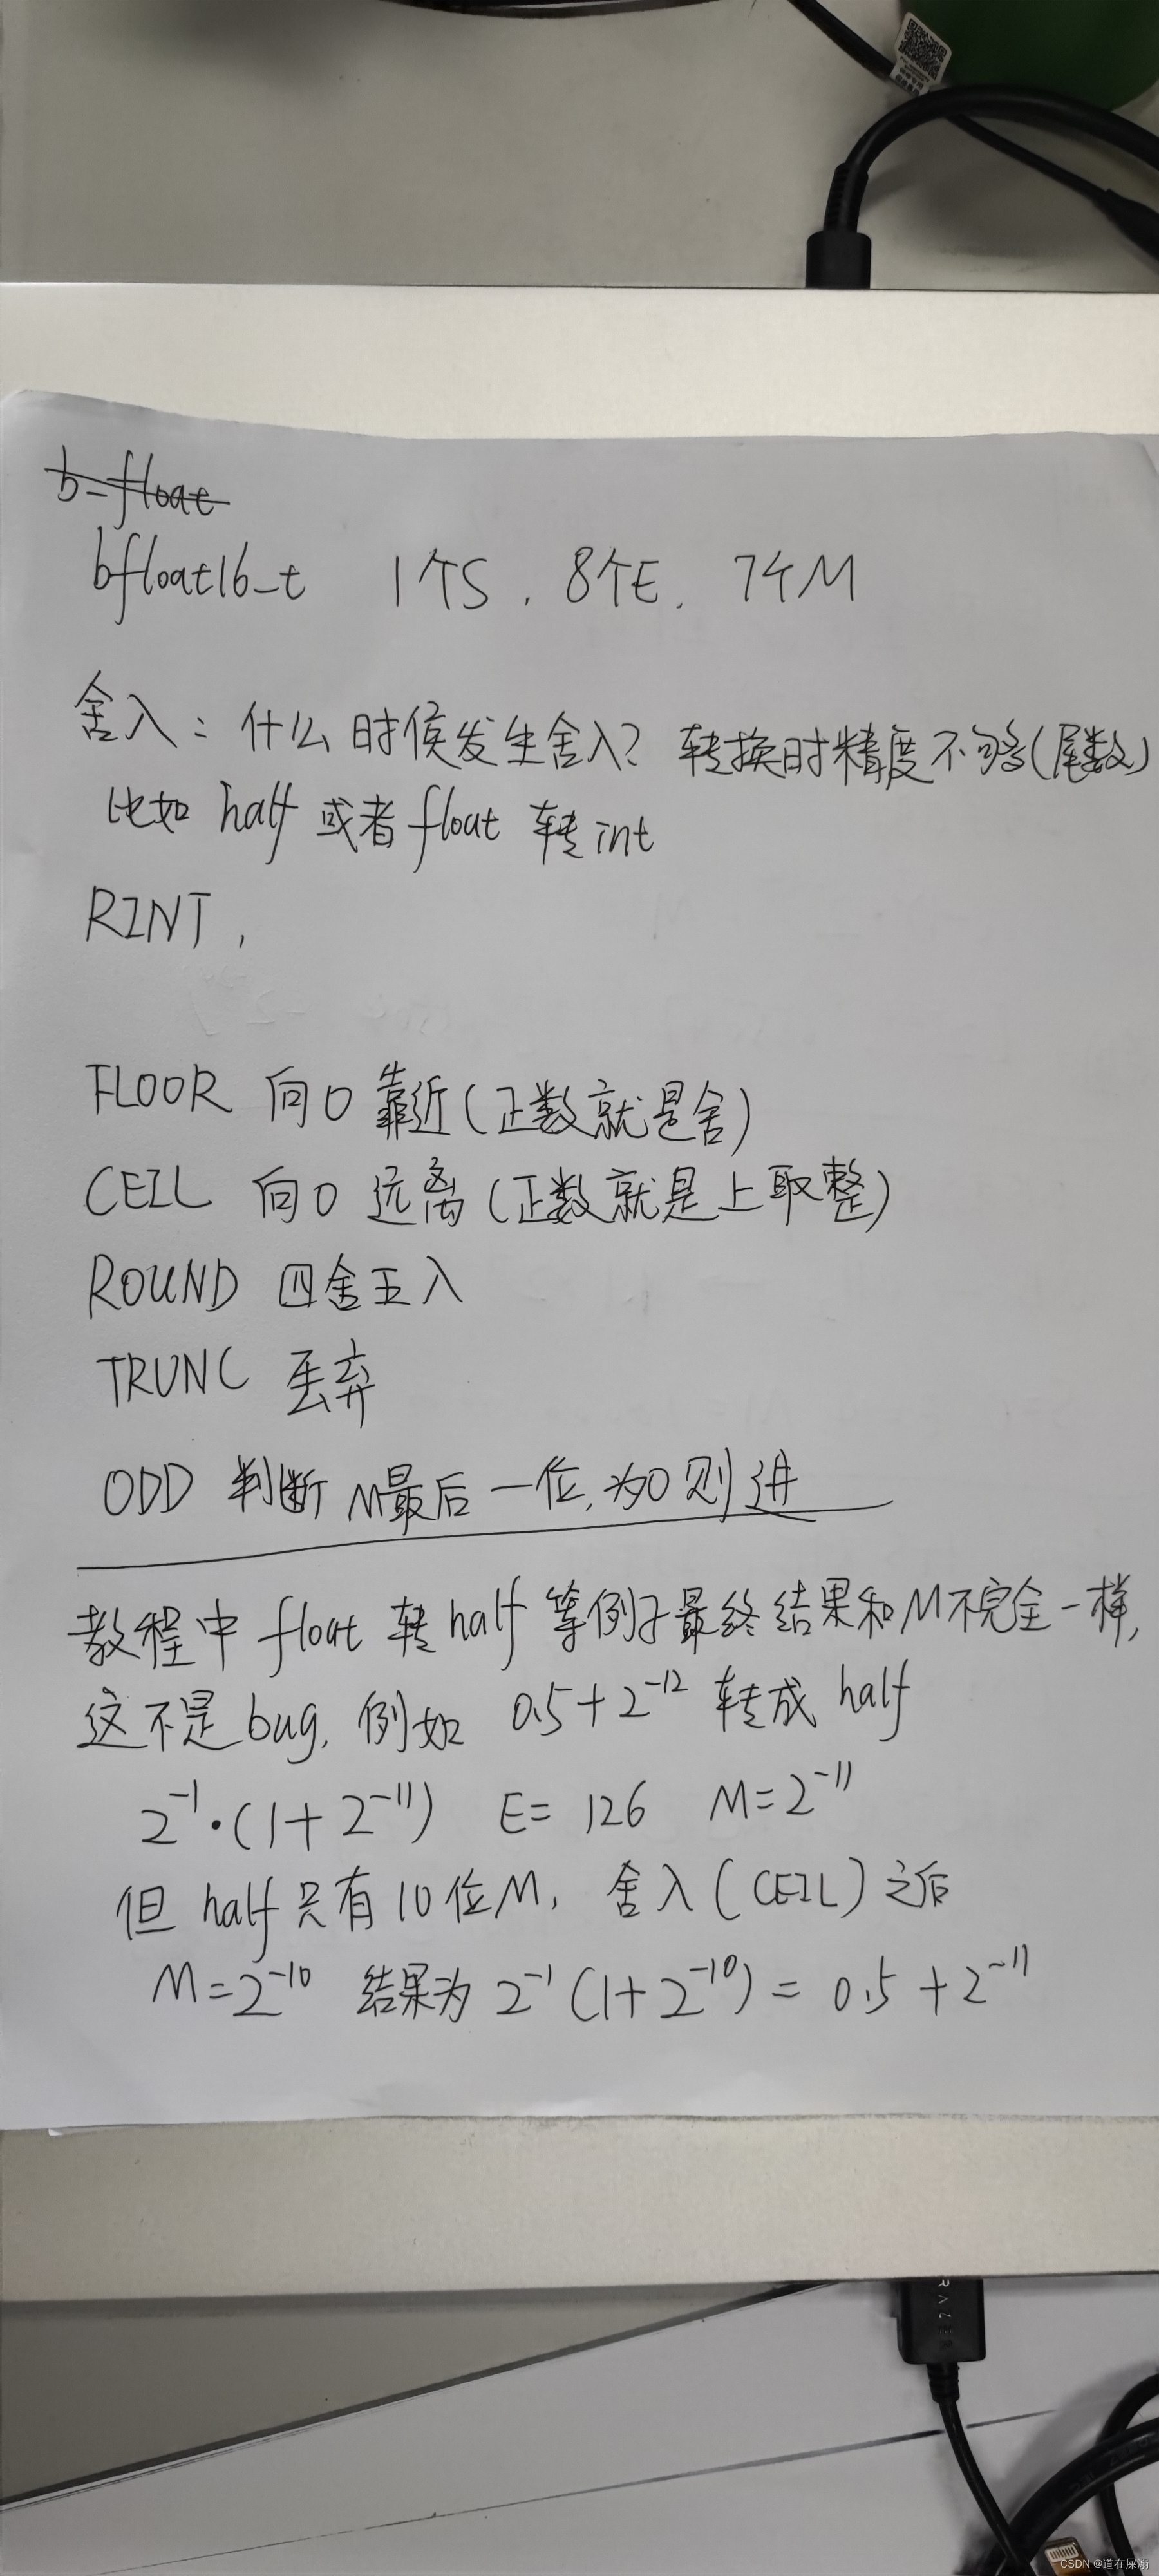 b-float
bfloat16_t 1个S, 8个E, 7个M
舍入: 什么时候发生舍入? 转换时精度不够(尾数)
比如 half 或者 float 转 int
RINT,
FLOOR 向0靠近(正数就是舍)
CEIL 向0 远离(正数就是上取整)
ROUND 四舍五入
TRUNC 丢弃
ODD 判断M最后一位, 为0则进
教程中 float 转 half 等例子最终结果和M不完全一样,
这不是bug, 例如 0.5+2⁻¹² 转成 half
2⁻¹·(1+2⁻¹¹) E=126 M=2⁻¹¹
但 half 只有10位M, 舍入(CEIL)之后
M=2⁻¹⁰ 结果为 2⁻¹(1+2⁻¹⁰)=0.5+2⁻¹¹
CSDN @道在屎溺